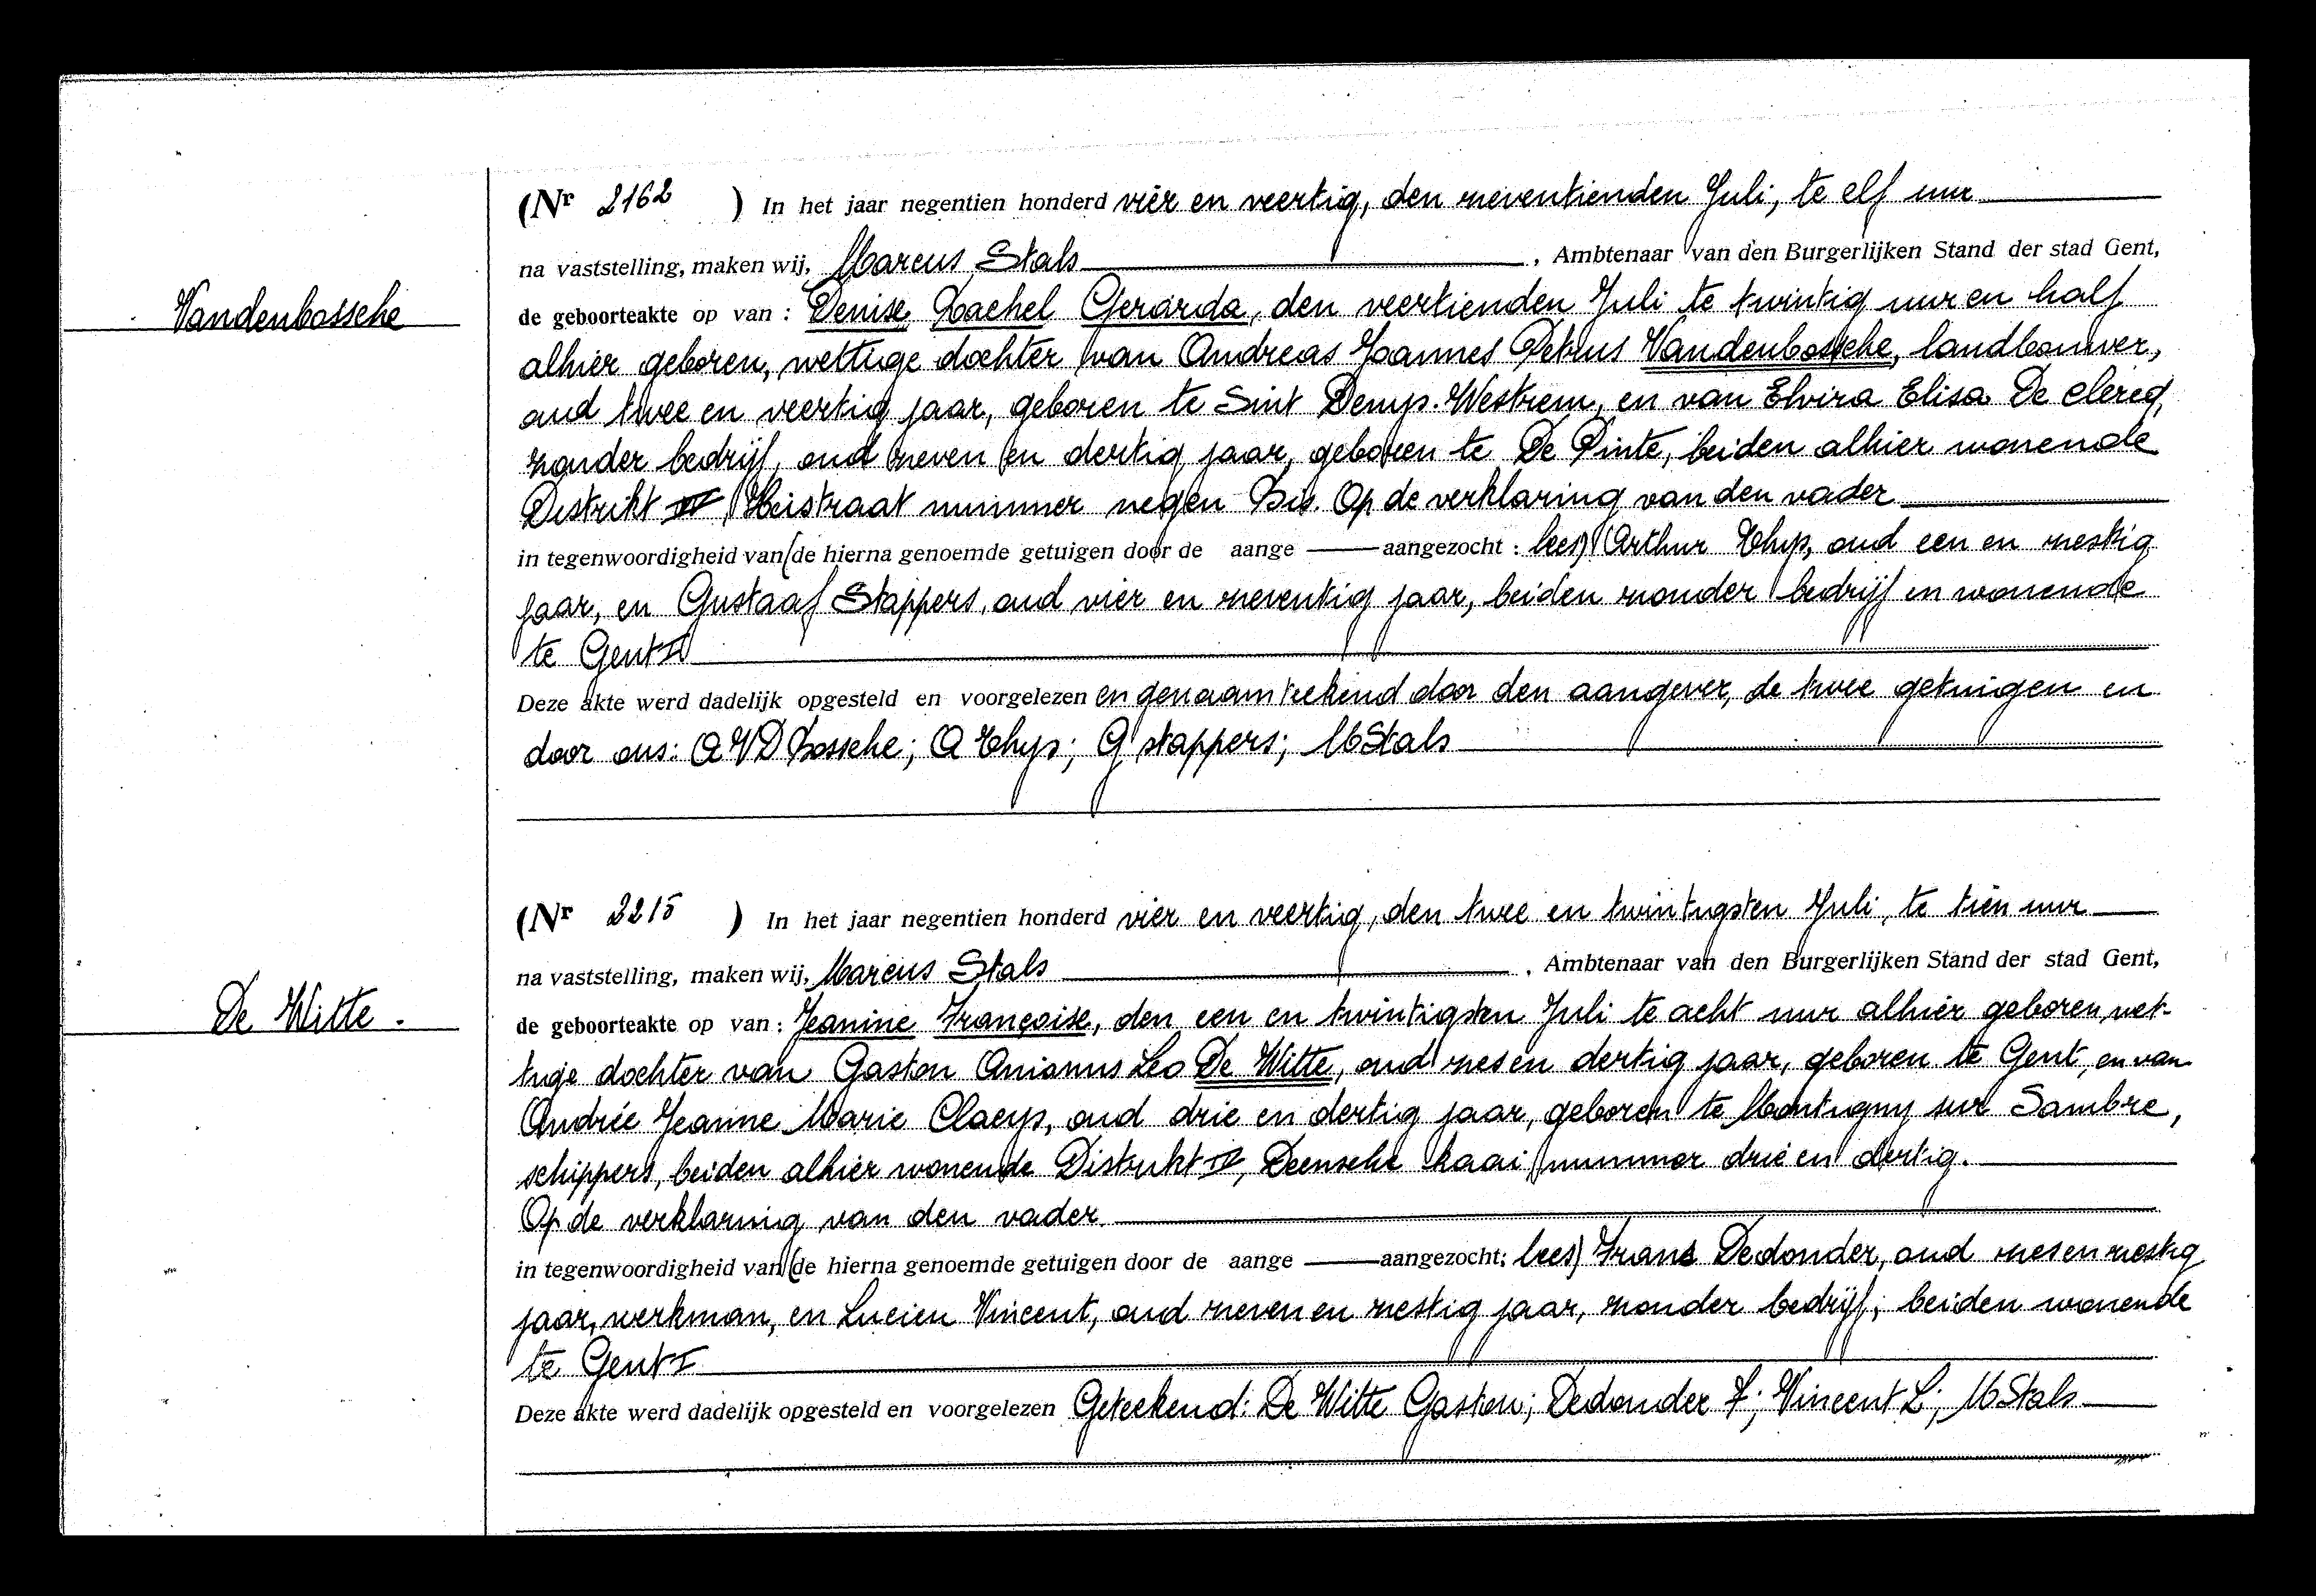 (Nr 2162 ) In het jaar negentien honderd vier en veertig, den zeventienden Juli, te elf uur
na vaststelling, maken wij, Marcus Stals, Ambtenaar van den Burgerlijken Stand der stad Gent,
Vandenbossche
de geboorteakte op van : Denise Rachel Gerarda, den veertienden Juli te twintig uur en half
alhier geboren, wettige dochter van Andreas Joannes Petrus Vandenbossche, landbouwer,
oud twee en veertig jaar, geboren te Sint Denijs-Westrem, en van Elvira Elisa De Clercq,
zonder bedrijf, oud zeven en dertig jaar, geboren te De Pinte, beiden alhier wonende
Distrikt IV Heistraat nummer negen Bis. Op de verklaring van den vader
in tegenwoordigheid van (de hierna genoemde getuigen door de aange — aangezocht : lees) Arthur Thys, oud een en zestig
jaar, en Gustaaf Stappers, oud vier en zeventig jaar, beiden zonder bedrijf en wonende
te Gent I
Deze akte werd dadelijk opgesteld en voorgelezen en genaamteekend door den aangever, de twee getuigen en
door ons: A VD Bossche; A Thys; G stappers; M Stals
(Nr 2215 ) In het jaar negentien honderd vier en veertig, den twee en twintigsten Juli, te tien uur
na vaststelling, maken wij, Marcus Stals, Ambtenaar van den Burgerlijken Stand der stad Gent,
De Witte.
de geboorteakte op van : Jeanine Françoise, den een en twintigsten Juli te acht uur alhier geboren, wet-
tige dochter van Gaston Anianus Leo De Witte, oud zes en dertig jaar, geboren te Gent, en van
Andrée Jeanne Marie Claeys, oud drie en dertig jaar, geboren te Montigny sur Sambre,
schippers, beiden alhier wonende Distrikt IV, Deensche kaai nummer drie en dertig.
Op de verklaring van den vader
in tegenwoordigheid van (de hierna genoemde getuigen door de aange — aangezocht: lees) Frans Dedonder, oud zes en zestig
jaar, werkman, en Lucien Vincent, oud zeven en zestig jaar, zonder bedrijf; beiden wonende
te Gent I
Deze akte werd dadelijk opgesteld en voorgelezen Geteekend: De Witte Gaston; Dedonder F; Vincent L; M Stals